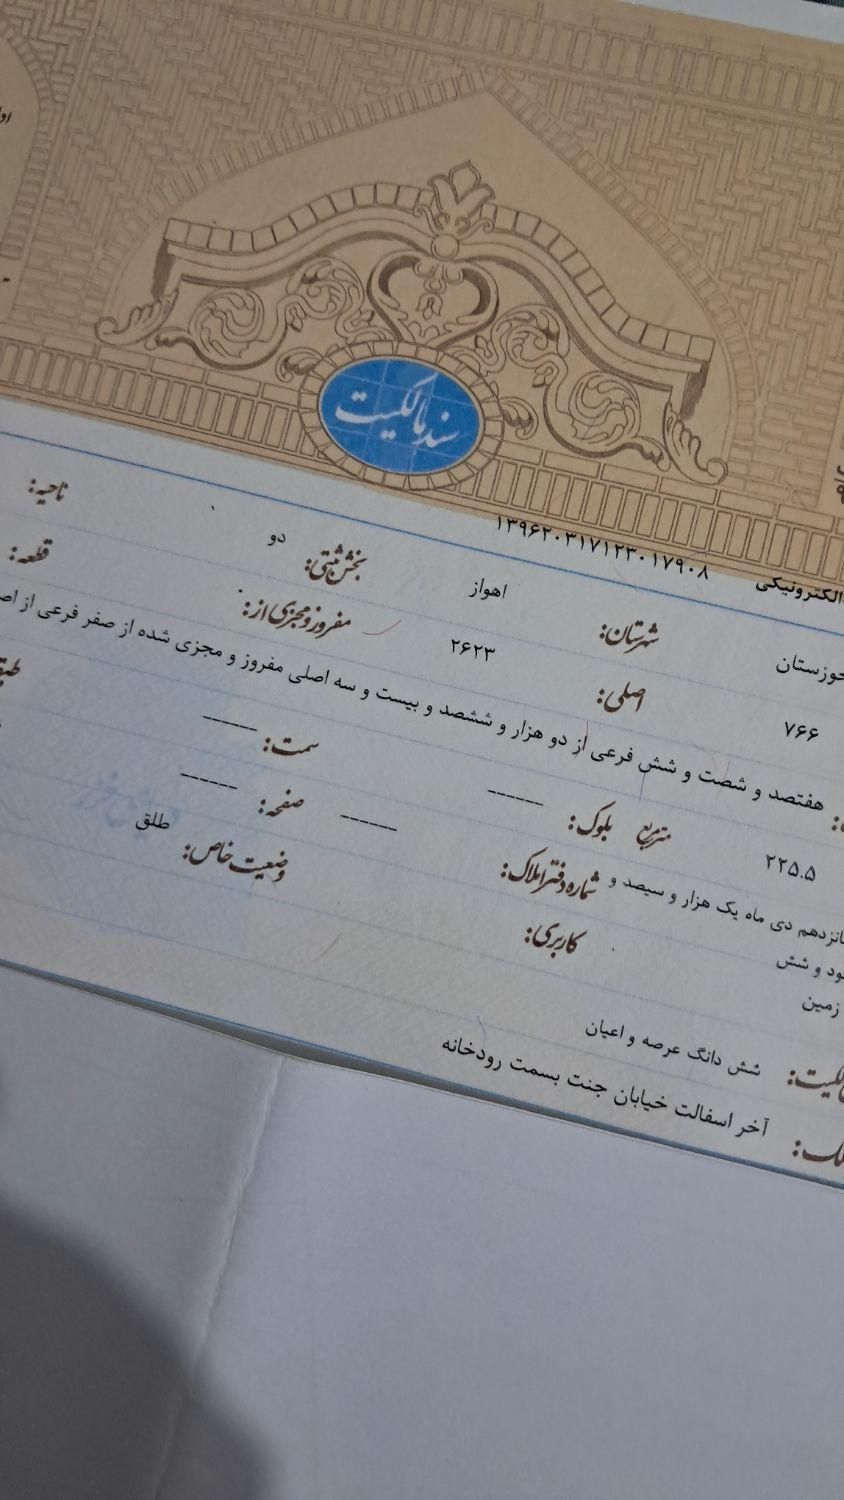 سند مالکیت
الکترونیکی ۱۳۹۶۲۰۳۱۷۱۲۳۰۱۷۹۰۸
خوزستان شهرستان: اهواز بخش ثبتی: دو ناحیه:
۷۶۶ اصلی: ۲۶۲۳ مفروز و مجزی از: قطعه:
هفتصد و شصت و شش فرعی از دو هزار و ششصد و بیست و سه اصلی مفروز و مجزی شده از صفر فرعی از
۲۲۵.۵ مترمربع بلوک: ------ سمت: ------
دی ماه یک هزار و سیصد و شماره دفتر املاک: ------ صفحه: ------
و شش
زمین کاربری: وضعیت خاص: طلق
شش دانگ عرصه و اعیان
آخر اسفالت خیابان جنت بسمت رودخانه